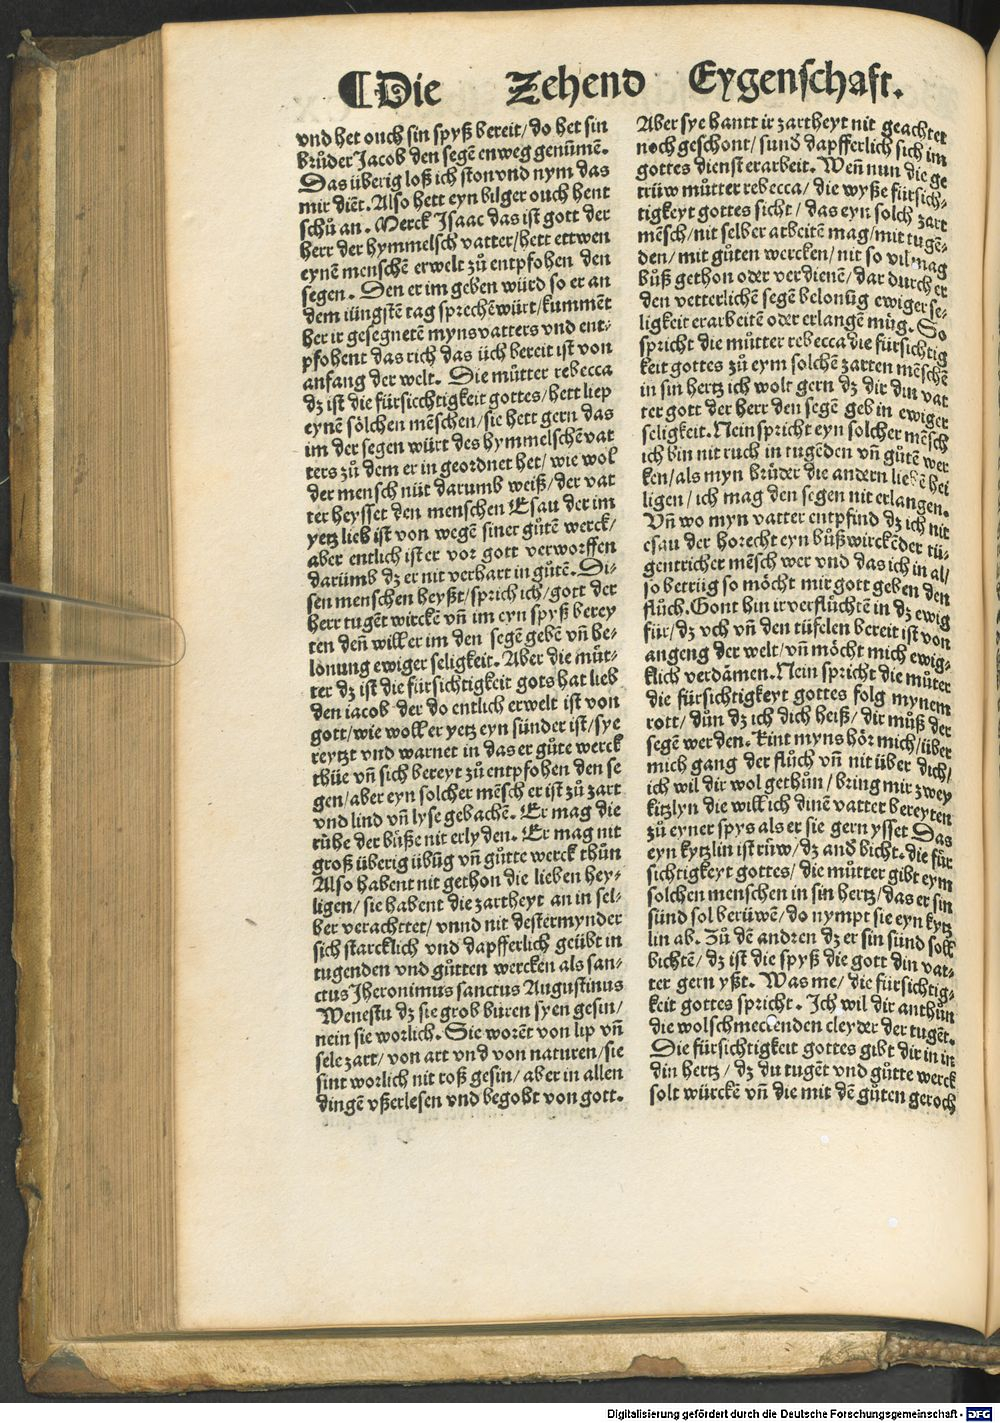 ¶Die Zehend Eygenschaft.
vnd het ouch sin spyß bereit/ do het sin
brůder Jacob den segē enweg genūmē.
Das überig loß ich ston vnd nym das
mir diēt. Also hett eyn bilger ouch hent
schů an. Merck Isaac das ist gott der
herr der hymmelsch vatter/ hett ettwen
eynē menschē erwelt zů entpfohen den
segen. Den er im geben würd so er an
dem iüngstē tag sprechē würt/ kummēt
her ir gesegnetē myns vatters vnd ent-
pfohent das rich das üch bereit ist von
anfang der welt. Die můtter rebecca
dz ist die fürsicchtigkeit gottes/ hett liep
eynē sölchen mēschen/ sie hett gern das
im der segen würt des hymmelschē vat
ters zů dem er in geordnet het/ wie wol
der mensch nüt darumb weiß/ der vat
ter heysset den menschen Esau der im
yetz lieb ist von wegē siner gůtē werck/
aber entlich ist er vor gott verworffen
darümb dz er nit verhart in gůtē. Di-
sen menschen heyßt/ sprich ich/ gott der
herr tugēt wirckē vñ im eyn spyß berey
ten deñ will er im den segē gebē vñ be-
lonung ewiger seligkeit. Aber die můt-
ter dz ist die fürsichtigkeit gots hat lieb
den iacob der do entlich erwelt ist von
gott/ wie woll er yetz eyn sünder ist/ sye
reytzt vnd warnet in das er gůte werck
thüe vñ sich bereyt zů entpfohen den se
gen/ aber eyn solcher mēsch er ist zů zart
vnd lind vñ lyse gebachē. Er mag die
rühe der bůße nit erlyden. Er mag nit
groß überig übūg vñ gůtte werck thůn
Also habent nit gethon die lieben hey-
ligen/ sie habent die zartheyt an in sel-
ber verachttet/ vnnd nit destermynder
sich starcklich vnd dapfferlich geübt in
tugenden vnd gůtten wercken als san-
ctus Jheronimus sanctus Augustinus
Wenestu dz sie grob buren syen gesin/
nein sie worlich. Sie worēt von lip vñ
sele zart/ von art vnd von naturen/ sie
sint worlich nit roß gesin/ aber in allen
dingē vßerlesen vnd begobt von gott.
Aber sye hantt ir zartheyt nit geachtet
noch geschont/ sund dapfferlich sich im
gottes dienst erarbeit. Weñ nun die ge
trüw můtter rebecca/ die wyße fürsich-
tigkeyt gottes sicht/ das eyn solch zart
mēsch/ nit selber arbeitē mag/ mit tugē-
den/ mit gůten wercken/ nit so vil mag
bůß gethon oder verdienē/ dar durch er
den vetterlichē segē belonūg ewiger se-
ligkeit erarbeitē oder erlangē müg. So
spricht die můtter rebecca die fürsichtig
keit gottes zů eym solchē zarten mēschē
in sin hertz ich wolt gern dz dir din vat
ter gott der herr den segē geb in ewiger
seligkeit. Nein spricht eyn solcher mēsch
ich bin nit ruch in tugēden vñ gůtē wer
ken/ als myn brůder die andern liebē hei
ligen/ ich mag den segen nit erlangen.
Vñ wo myn vatter entpfind dz ich nit
esau der horecht eyn bůßwirckēder tü-
gentricher mēsch wer vnd das ich in al/
so betrüg so möcht mir gott geben den
flůch. Gont hin ir verflůchtē in dz ewig
für/ dz vch vñ den tüfelen bereit ist von
angeng der welt/ vñ möcht mich ewig-
klich verdāmen. Nein spricht die můter
die fürsichtigkeyt gottes folg mynem
rott/ důn dz ich dich heiß/ dir můß der
segē werden. Kint myns hör mich/ über
mich gang der flůch vñ nit über dich/
ich wil dir wol gethůn/ bring mir zwey
kitzlyn die will ich dinē vatter bereyten
zů eyner spys als er sie gern ysset Das
eyn kytzlin ist rüw/ dz and bicht. die für
sichtigkeyt gottes/ die můtter gibt eym
solchen menschen in sin hertz/ das er sin
sünd sol berüwē/ do nympt sie eyn kytz
lin ab. Zů dē andren dz er sin sünd soll
bichtē/ dz ist die spyß die gott din vat-
ter gern yßt. Was me/ die fürsichtig-
keit gottes spricht. Ich wil dir anthůn
die wolschmeckenden cleyder der tugēt.
Die fürsichtigkeit gottes gibt dir in in
din hertz/ dz du tugēt vnd gůtte werck
solt würckē vñ die mit dē gůten geroch
Digitalisierung gefördert durch die Deutsche Forschungsgemeinschaft - DFG